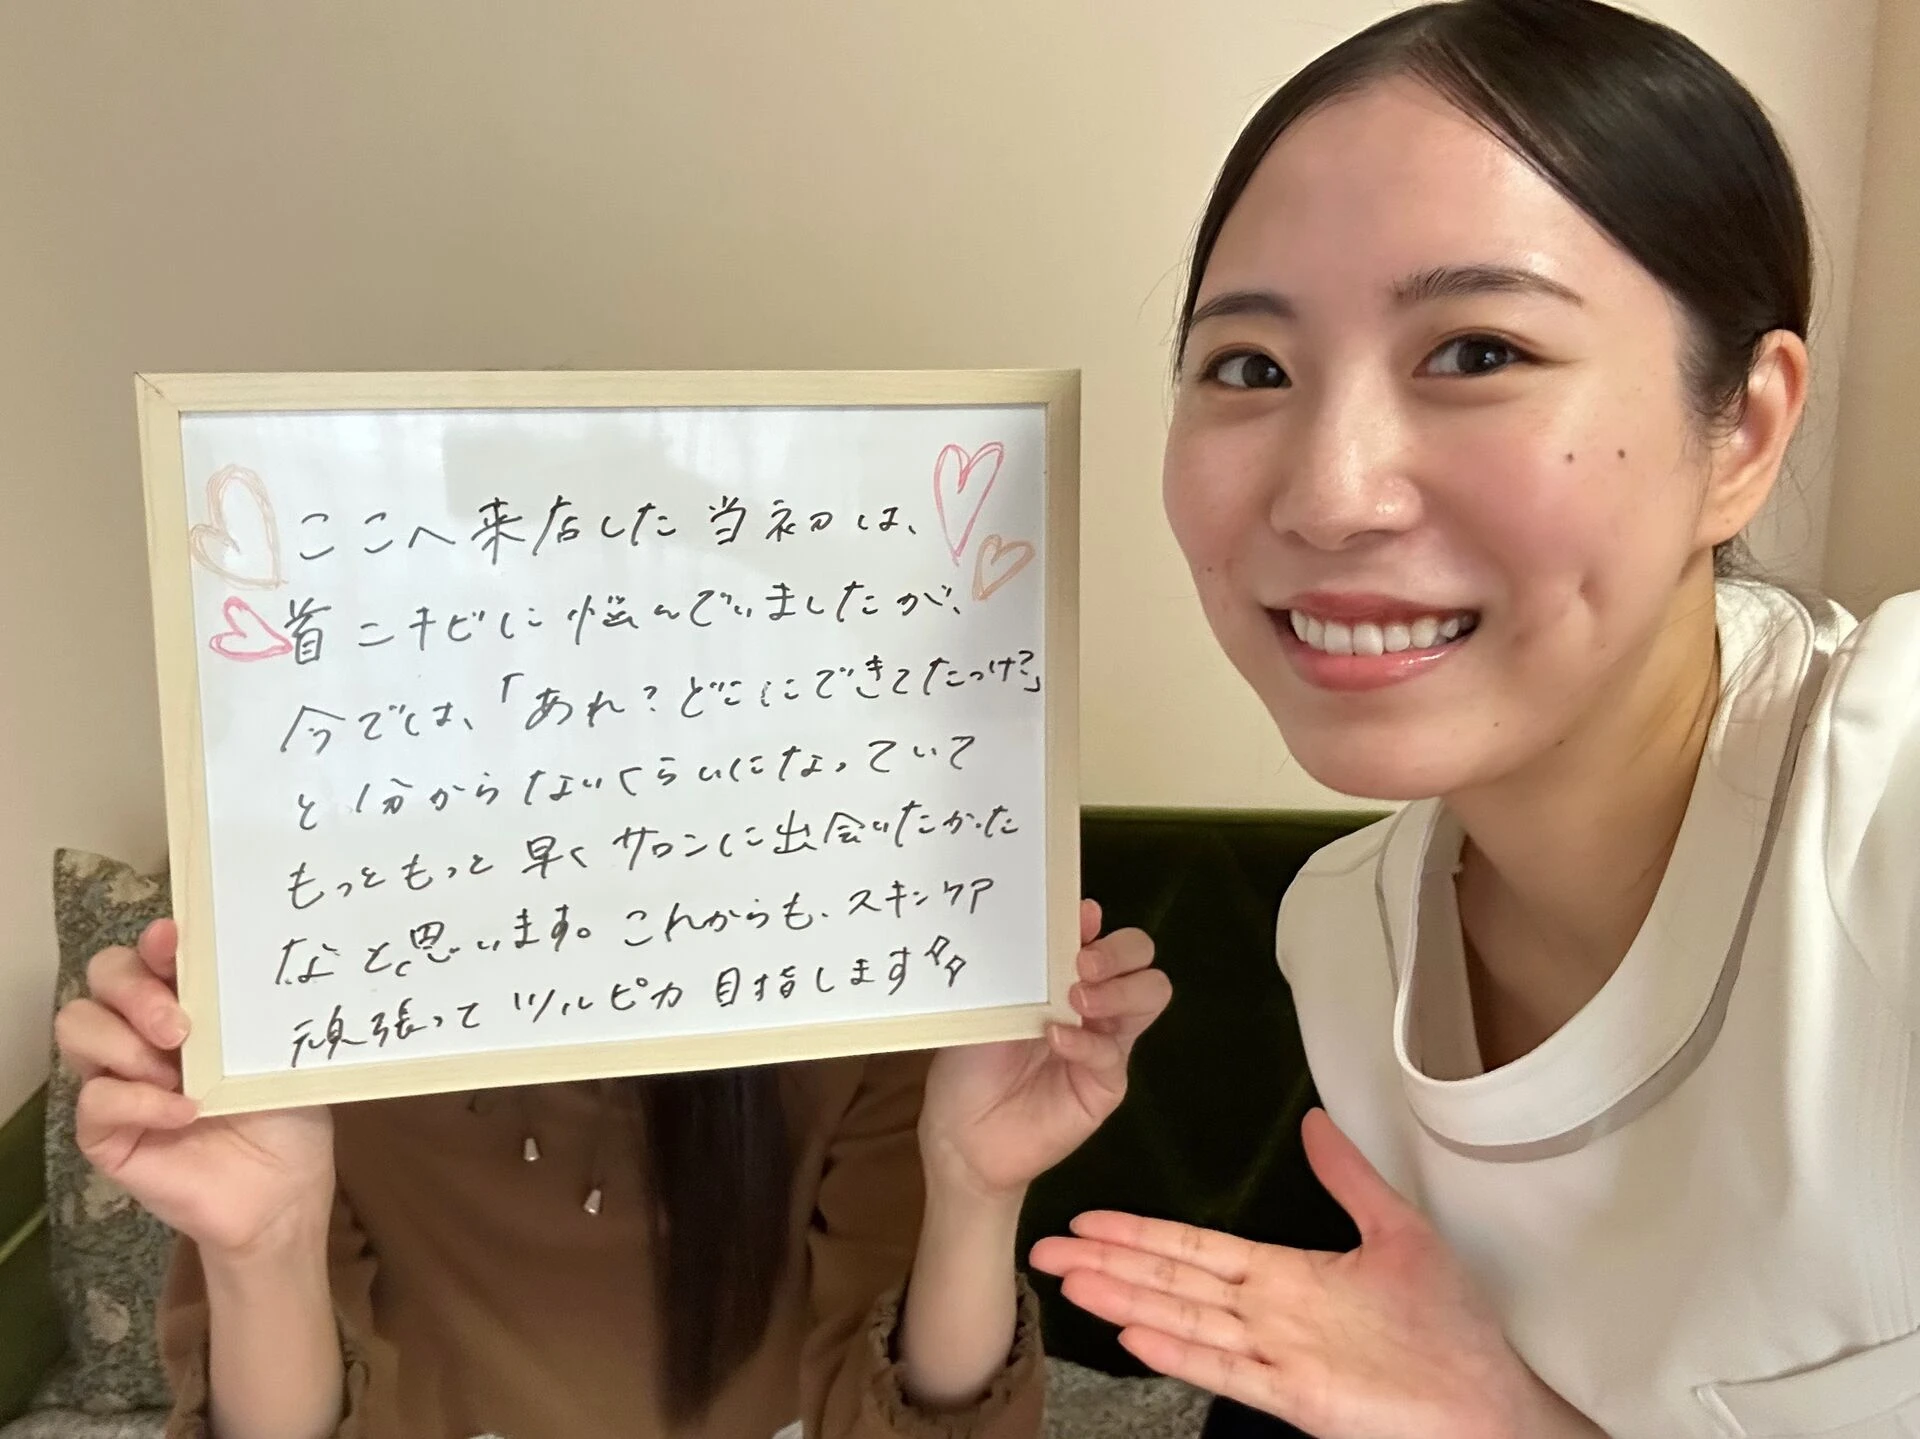 ここへ来店した当初は、
首ニキビに悩んでいましたが、
今では、「あれ?どこにできてたっけ?」
と分からないくらいになっていて
もっともっと早くサロンに出会いたかった
なと思います。これからも、スキンケア
頑張ってツルピカ目指します